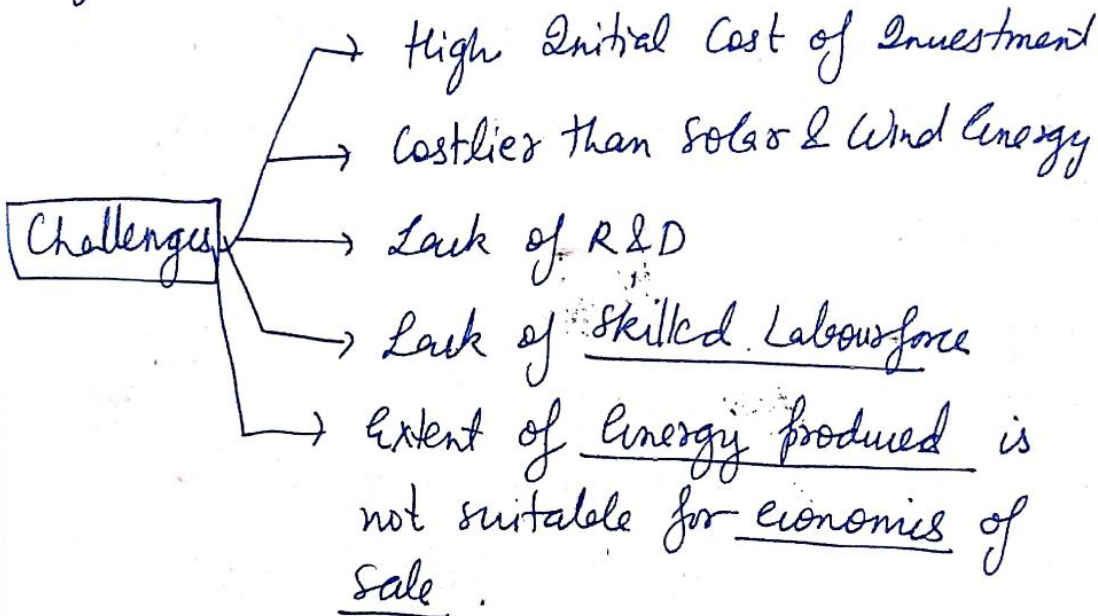 High Initial Cost of Investment
Costlier than Solar & Wind Energy
Challenges
Lack of R&D
Lack of Skilled Labourforce
Extent of Energy produced is
not suitable for economies of
sale.